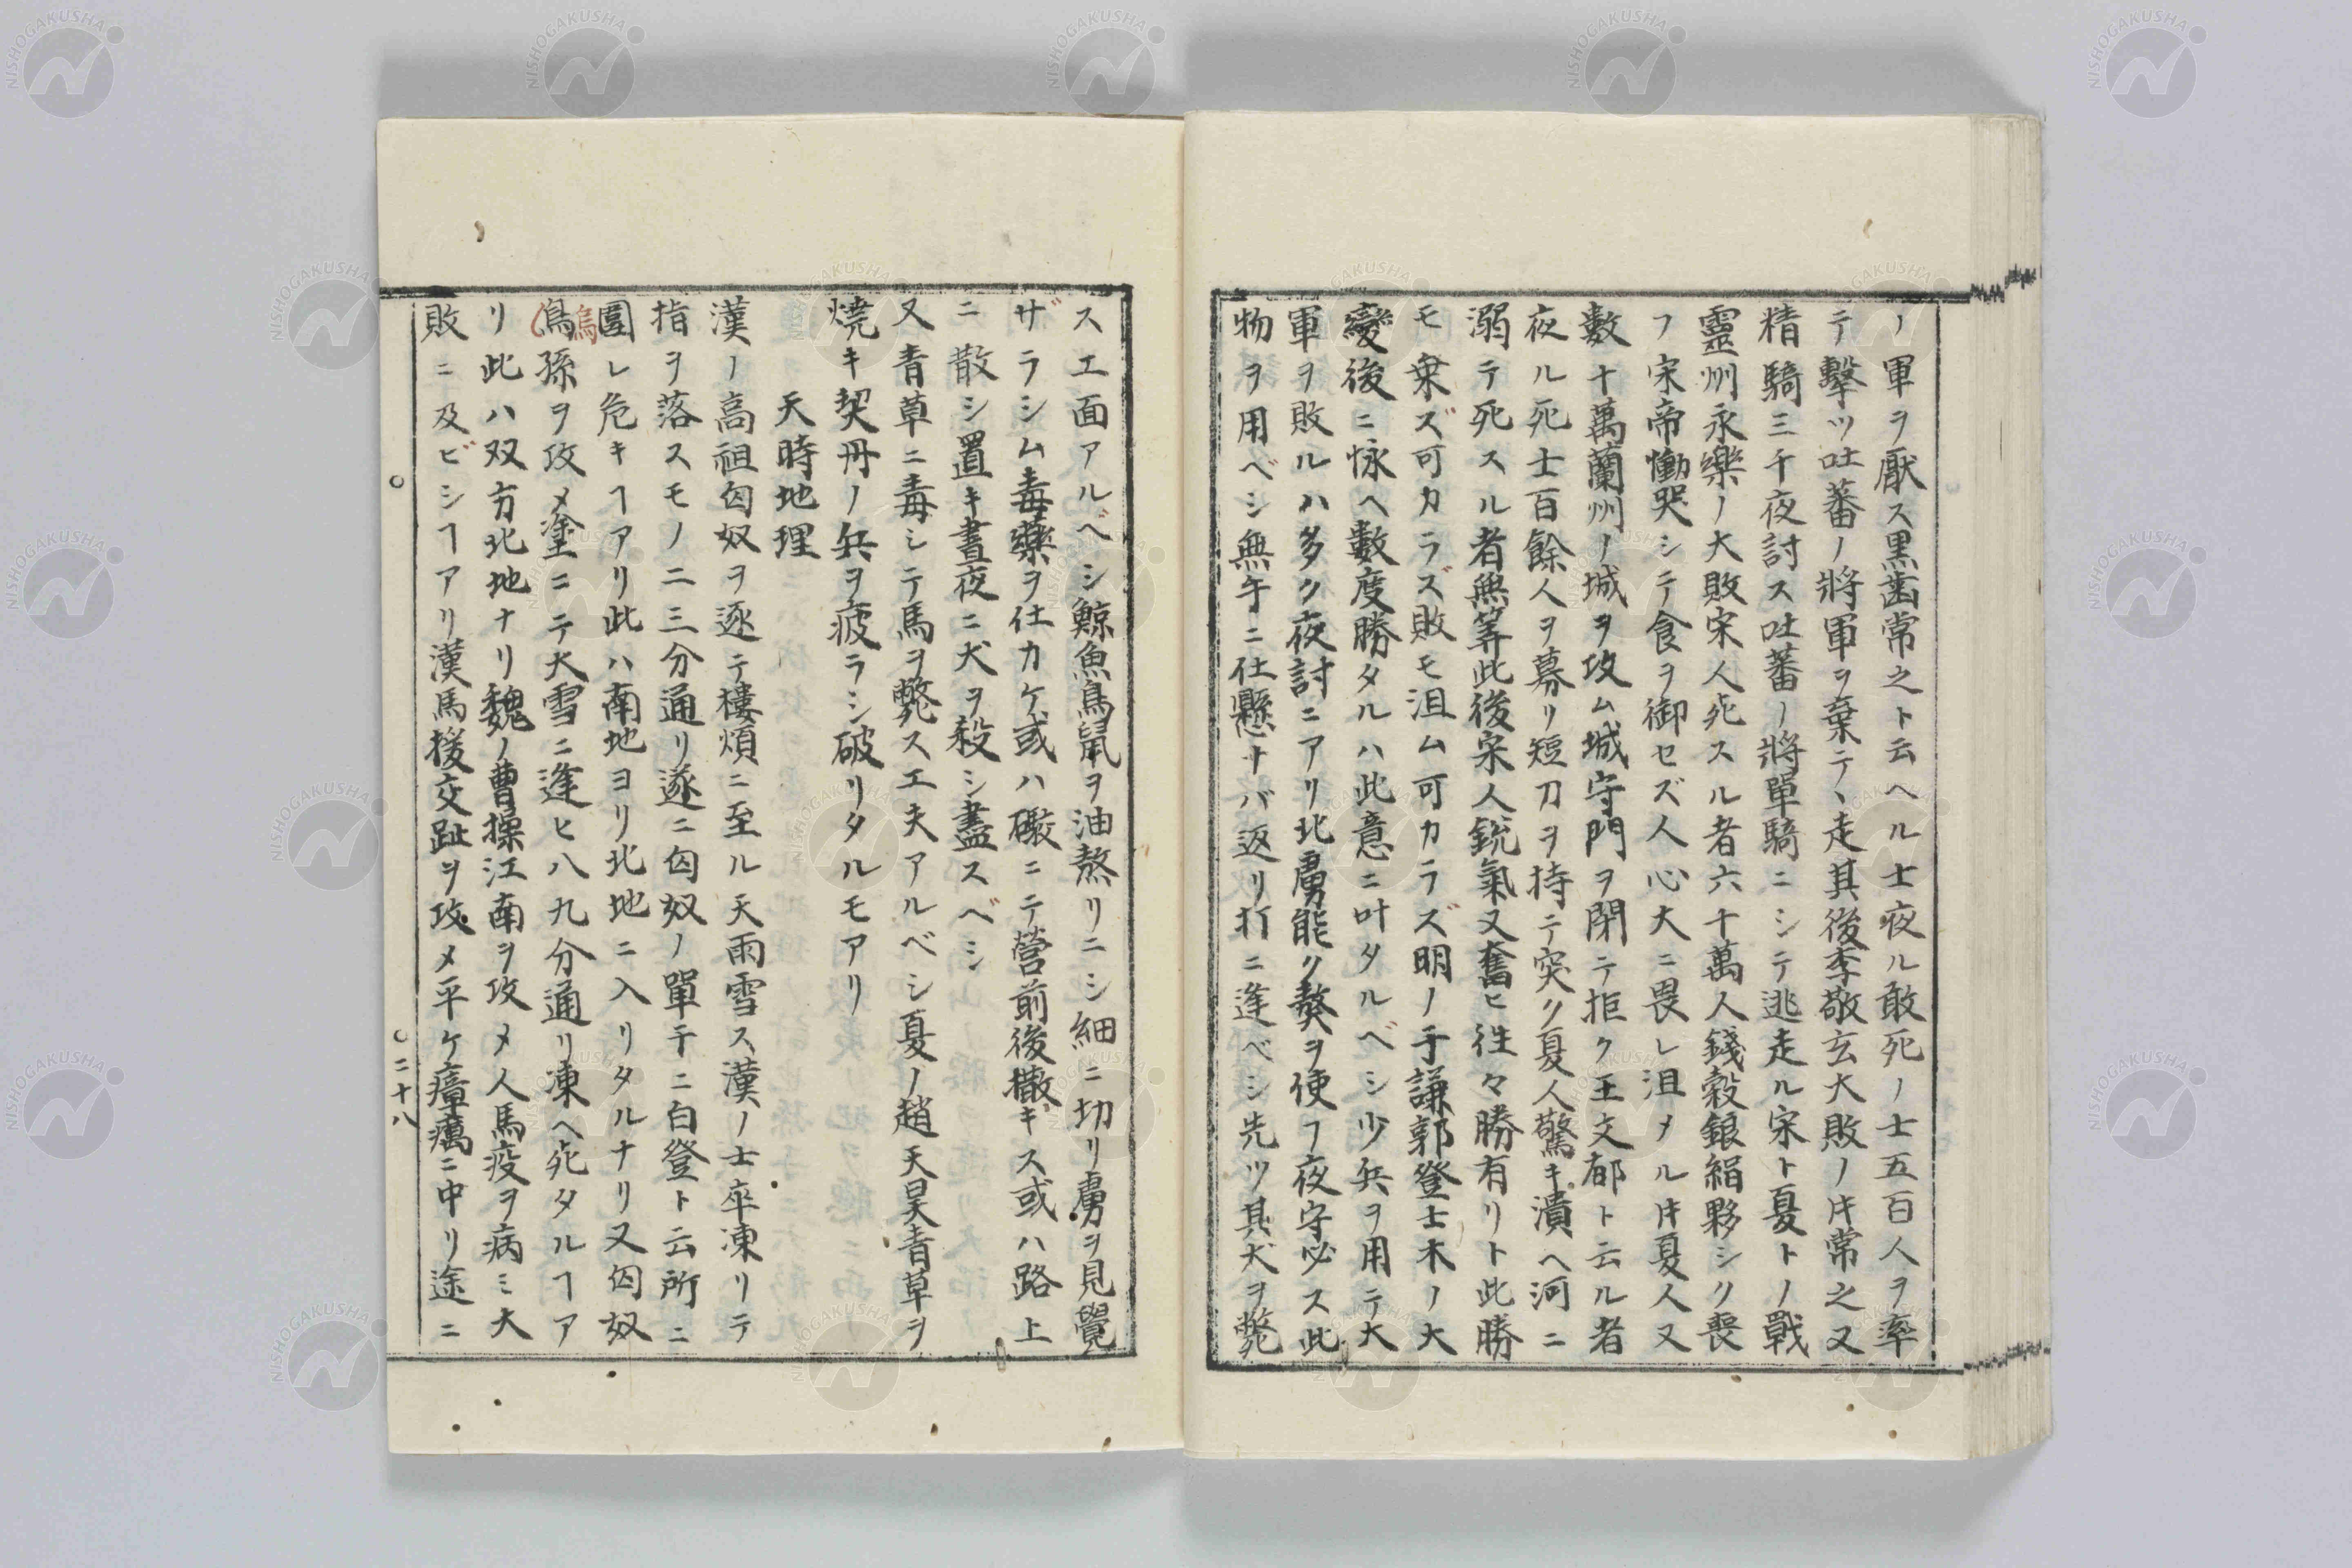 ノ軍ヲ厭ス黒歯常之ト云ヘル士夜ル敢死ノ士五百人ヲ率
テ撃ツ吐蕃ノ將軍ヲ棄テヽ走其後李敬玄大敗ノ片常之又
精騎三千夜討ス吐蕃ノ將單騎ニシテ逃走ル宋ト夏トノ戰
靈州永樂ノ大敗宋人死スル者六十萬人錢穀銀絹夥シク喪
フ宋帝慟哭シテ食ヲ御セズ人心大ニ畏レ沮メル片夏人又
數十萬蘭州ノ城ヲ攻ム城守門ヲ閉テ拒ク王文郁ト云ル者
夜ル死士百餘人ヲ募リ短刀ヲ持テ突ク夏人驚キ潰ヘ河ニ
溺テ死スル者無筭此後宋人銳氣又奮ヒ徃々勝有リト此勝
モ棄ズ可カラズ敗モ沮ム可カラズ明ノ于謙郭登士木ノ大
變後ニ怺ヘ數度勝タルハ此意ニ叶タルベシ少兵ヲ用テ大
軍ヲ敗ルハ多ク夜討ニアリ北虜能ク獒ヲ使フ夜守必ス此
物ヲ用ベシ無乍ニ仕懸ナバ返リ打ニ逢ベシ先ツ其犬ヲ斃
スエ面アルベシ鯨魚鳥鼠ヲ油熬リニシ細ニ切リ虜ヲ見覺
ザラシム毒藥ヲ仕カケ或ハ礮ニテ營前後撒キス或ハ路上
ニ散シ置キ晝夜ニ犬ヲ殺シ盡スベシ
又青草ニ毒シテ馬ヲ斃スエ夫アルベシ夏ノ趙天昊青草ヲ
燒キ契丹ノ兵ヲ疲ラシ破リタルモアリ
天時地理
漢ノ高祖匈奴ヲ逐テ樓煩ニ至ル天雨雪ス漢ノ士卒凍リテ
指ヲ落スモノ二三分通リ遂ニ匈奴ノ單于ニ白登ト云所ニ
圍レ危キヿアリ此ハ南地ヨリ北地ニ入リタルナリ又匈奴
烏
鳥孫ヲ攻メ塗ニテ大雪ニ逢ヒ八九分通リ凍ヘ死タルヿア
リ此ハ双方北地ナリ魏ノ曹操江南ヲ攻メ人馬疫ヲ病ミ大
敗ニ及ビシヿアリ漢馬援交趾ヲ攻メ平ケ瘴癘ニ中リ途ニ
二十八
NISHOGAKUSHA